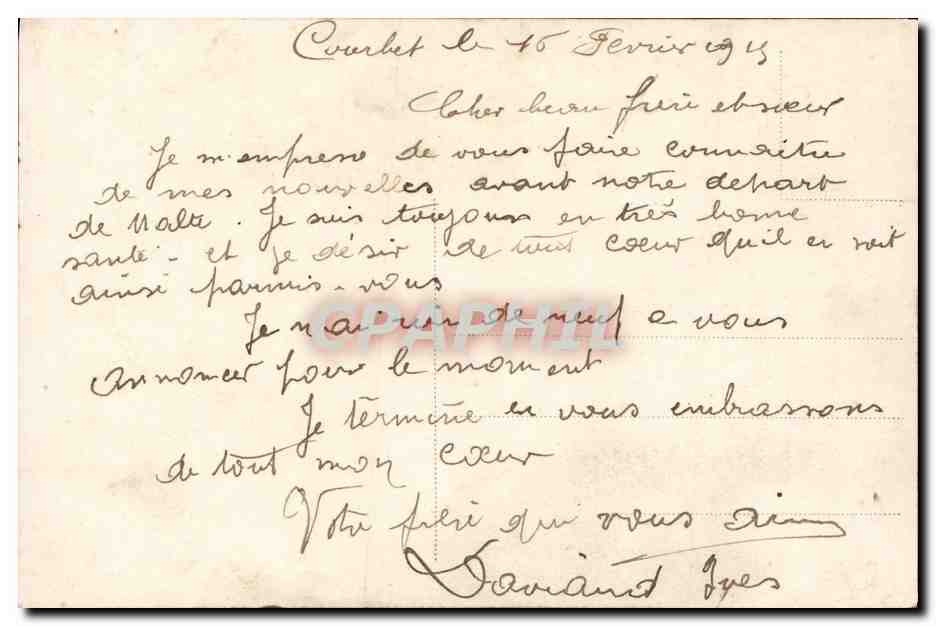 Courbet le 16 Fevrier 1915
Cher beau frère et sœur
Je m'empresse de vous faire connaitre
de mes nouvelles avant notre depart
de Malte. Je suis toujours en très bonne
santé - et je désir de tout cœur qu'il en soit
ainsi parmis-vous
Je n'ai rien de neuf a vous
CPAPHIL
annoncer pour le moment
Je termine en vous embrassons
de tout mon cœur
Votre frère qui vous aime
Yves